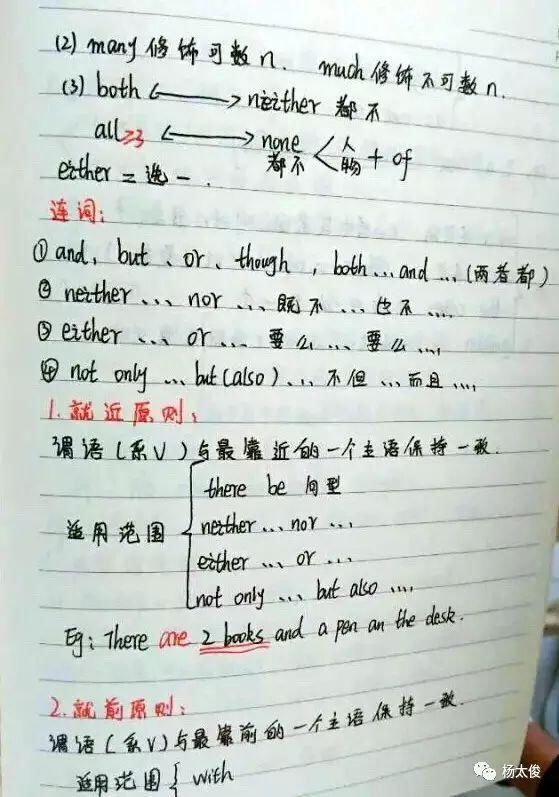 (2) many 修饰可数 n. much 修饰不可数 n.
(3) both ←→ neither 都不
all≥3 ←→ none 都不 < 人 物 + of
either = 选一.
连词:
① and, but、or、though, both...and...(两者都)
② neither...nor...既不...也不....
③ either...or...要么...要么....
④ not only...but(also)...不但...而且....
1.就近原则:
谓语(系V)与最靠近的一个主语保持一致.
适用范围
there be 句型
neither...nor...
either...or...
not only...but also....
Eg: There are 2 books and a pen an the desk.
2.就前原则:
谓语(系V)与最靠前的一个主语保持一致.
适用范围 { with
杨太俊